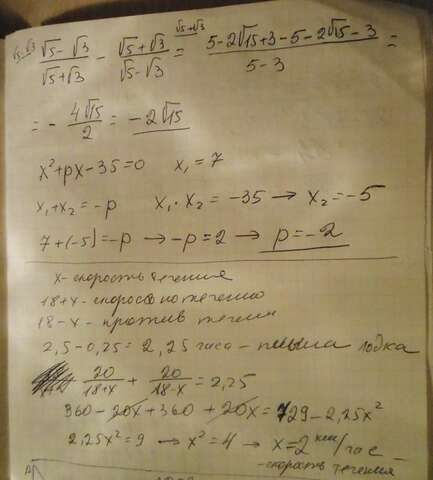 √5-√3 √5+√3
(√5-√3)/(√5+√3) - (√5+√3)/(√5-√3) = (5-2√15+3-5-2√15-3)/(5-3) =
= - 4√15/2 = -2√15
x²+px-35=0 x₁=7
x₁+x₂=-p x₁·x₂=-35 → x₂=-5
7+(-5)=-p → -p=2 → p=-2
x-скорость течения
18+x-скорость по течению
18-x- против течен
2,5-0,25=2,25 часа- плыла лодка
20/(18+x) + 20/(18-x) = 2,25
360-20x+360+20x=729-2,25x²
2,25x²=9 → x²=4 → x=2 км/час -
-скорость течения
A